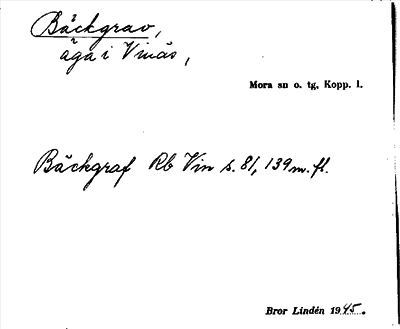 Bäckgrav,
äga i Vinäs,
Mora sn o. tg, Kopp. l.
Bäckgraf Rb Vin s. 81, 139 m. fl.
Bror Lindén 1945.